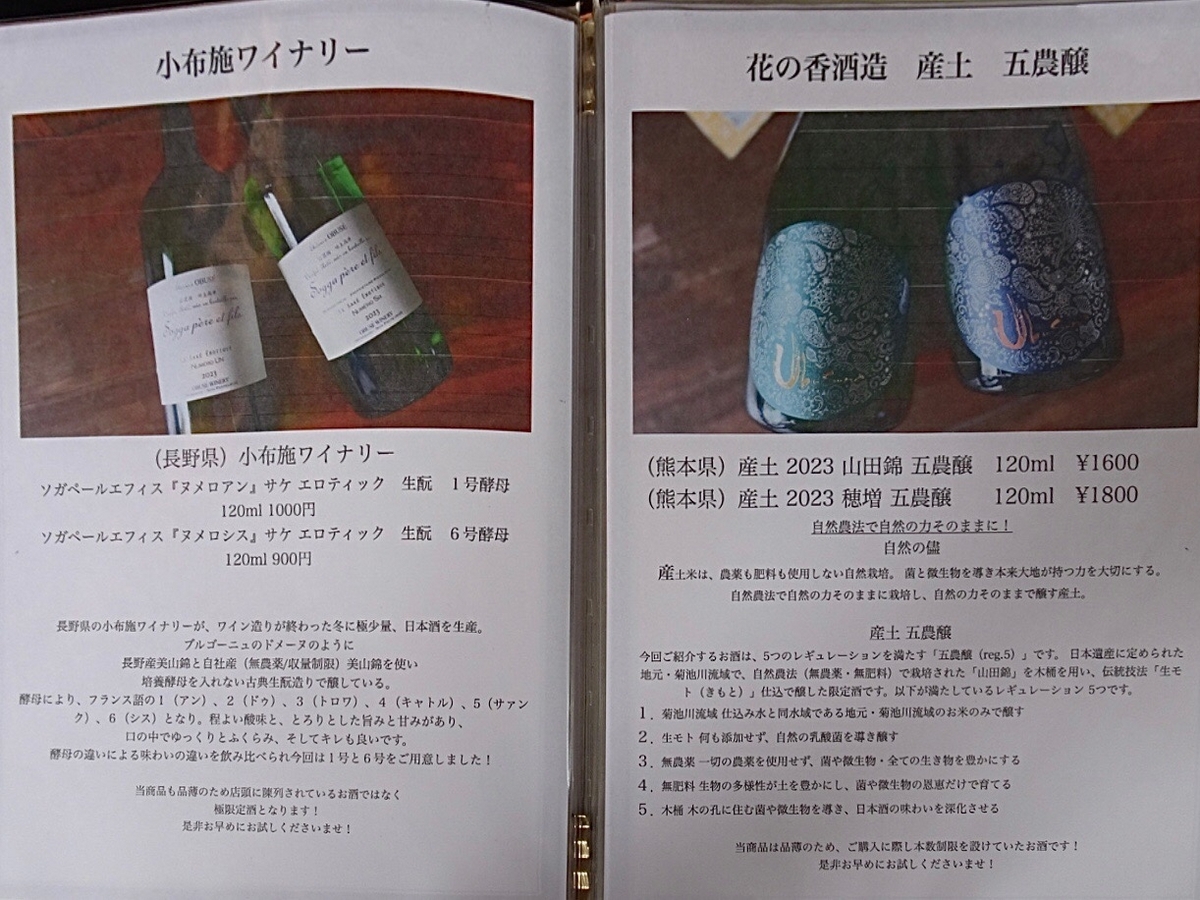 小布施ワイナリー
Domaine OBUSE
Sogga père et fils
Le Saké Erotique
Numéro Un
2023
OBUSE WINERY
Domaine OBUSE
Sogga père et fils
Le Saké Erotique
Numéro Six
2023
OBUSE WINERY
（長野県）小布施ワイナリー
ソガペールエフィス『ヌメロアン』サケ エロティック　生酛　１号酵母
120ml 1000円
ソガペールエフィス『ヌメロシス』サケ エロティック　生酛　６号酵母
120ml 900円
長野県の小布施ワイナリーが、ワイン造りが終わった冬に極少量、日本酒を生産。
ブルゴーニュのドメーヌのように
長野産美山錦と自社産（無農薬/収量制限）美山錦を使い
培養酵母を入れない古典生酛造りで醸している。
酵母により、フランス語の１（アン）、２（ドゥ）、３（トロワ）、４（キャトル）、５（サァン
ク）、６（シス）となり。程よい酸味と、とろりとした旨みと甘みがあり、
口の中でゆっくりとふくらみ、そしてキレも良いです。
酵母の違いによる味わいの違いを飲み比べられ今回は１号と６号をご用意しました！
当商品も品薄のため店頭に陳列されているお酒ではなく
極限定酒となります！
是非お早めにお試しくださいませ！
花の香酒造　産土　五農醸
（熊本県）産土 2023 山田錦 五農醸　120ml　¥1600
（熊本県）産土 2023 穂増 五農醸　　120ml　¥1800
自然農法で自然の力そのままに！
自然の儘
産土米は、農薬も肥料も使用しない自然栽培。 菌と微生物を導き本来大地が持つ力を大切にする。
自然農法で自然の力そのままに栽培し、自然の力そのままで醸す産土。
産土 五農醸
今回ご紹介するお酒は、5つのレギュレーションを満たす「五農醸（reg.5）」です。 日本遺産に定められた
地元・菊池川流域で、自然農法（無農薬・無肥料）で栽培された「山田錦」を木桶を用い、伝統技法「生モ
ト（きもと）」仕込で醸した限定酒です。以下が満たしているレギュレーション 5つです。
１. 菊池川流域 仕込み水と同水域である地元・菊池川流域のお米のみで醸す
２. 生モト 何も添加せず、自然の乳酸菌を導き醸す
３. 無農薬 一切の農薬を使用せず、菌や微生物・全ての生き物を豊かにする
４. 無肥料 生物の多様性が土を豊かにし、菌や微生物の恩恵だけで育てる
５. 木桶 木の孔に住む菌や微生物を導き、日本酒の味わいを深化させる
当商品は品薄のため、ご購入に際し本数制限を設けていたお酒です！
是非お早めにお試しくださいませ！